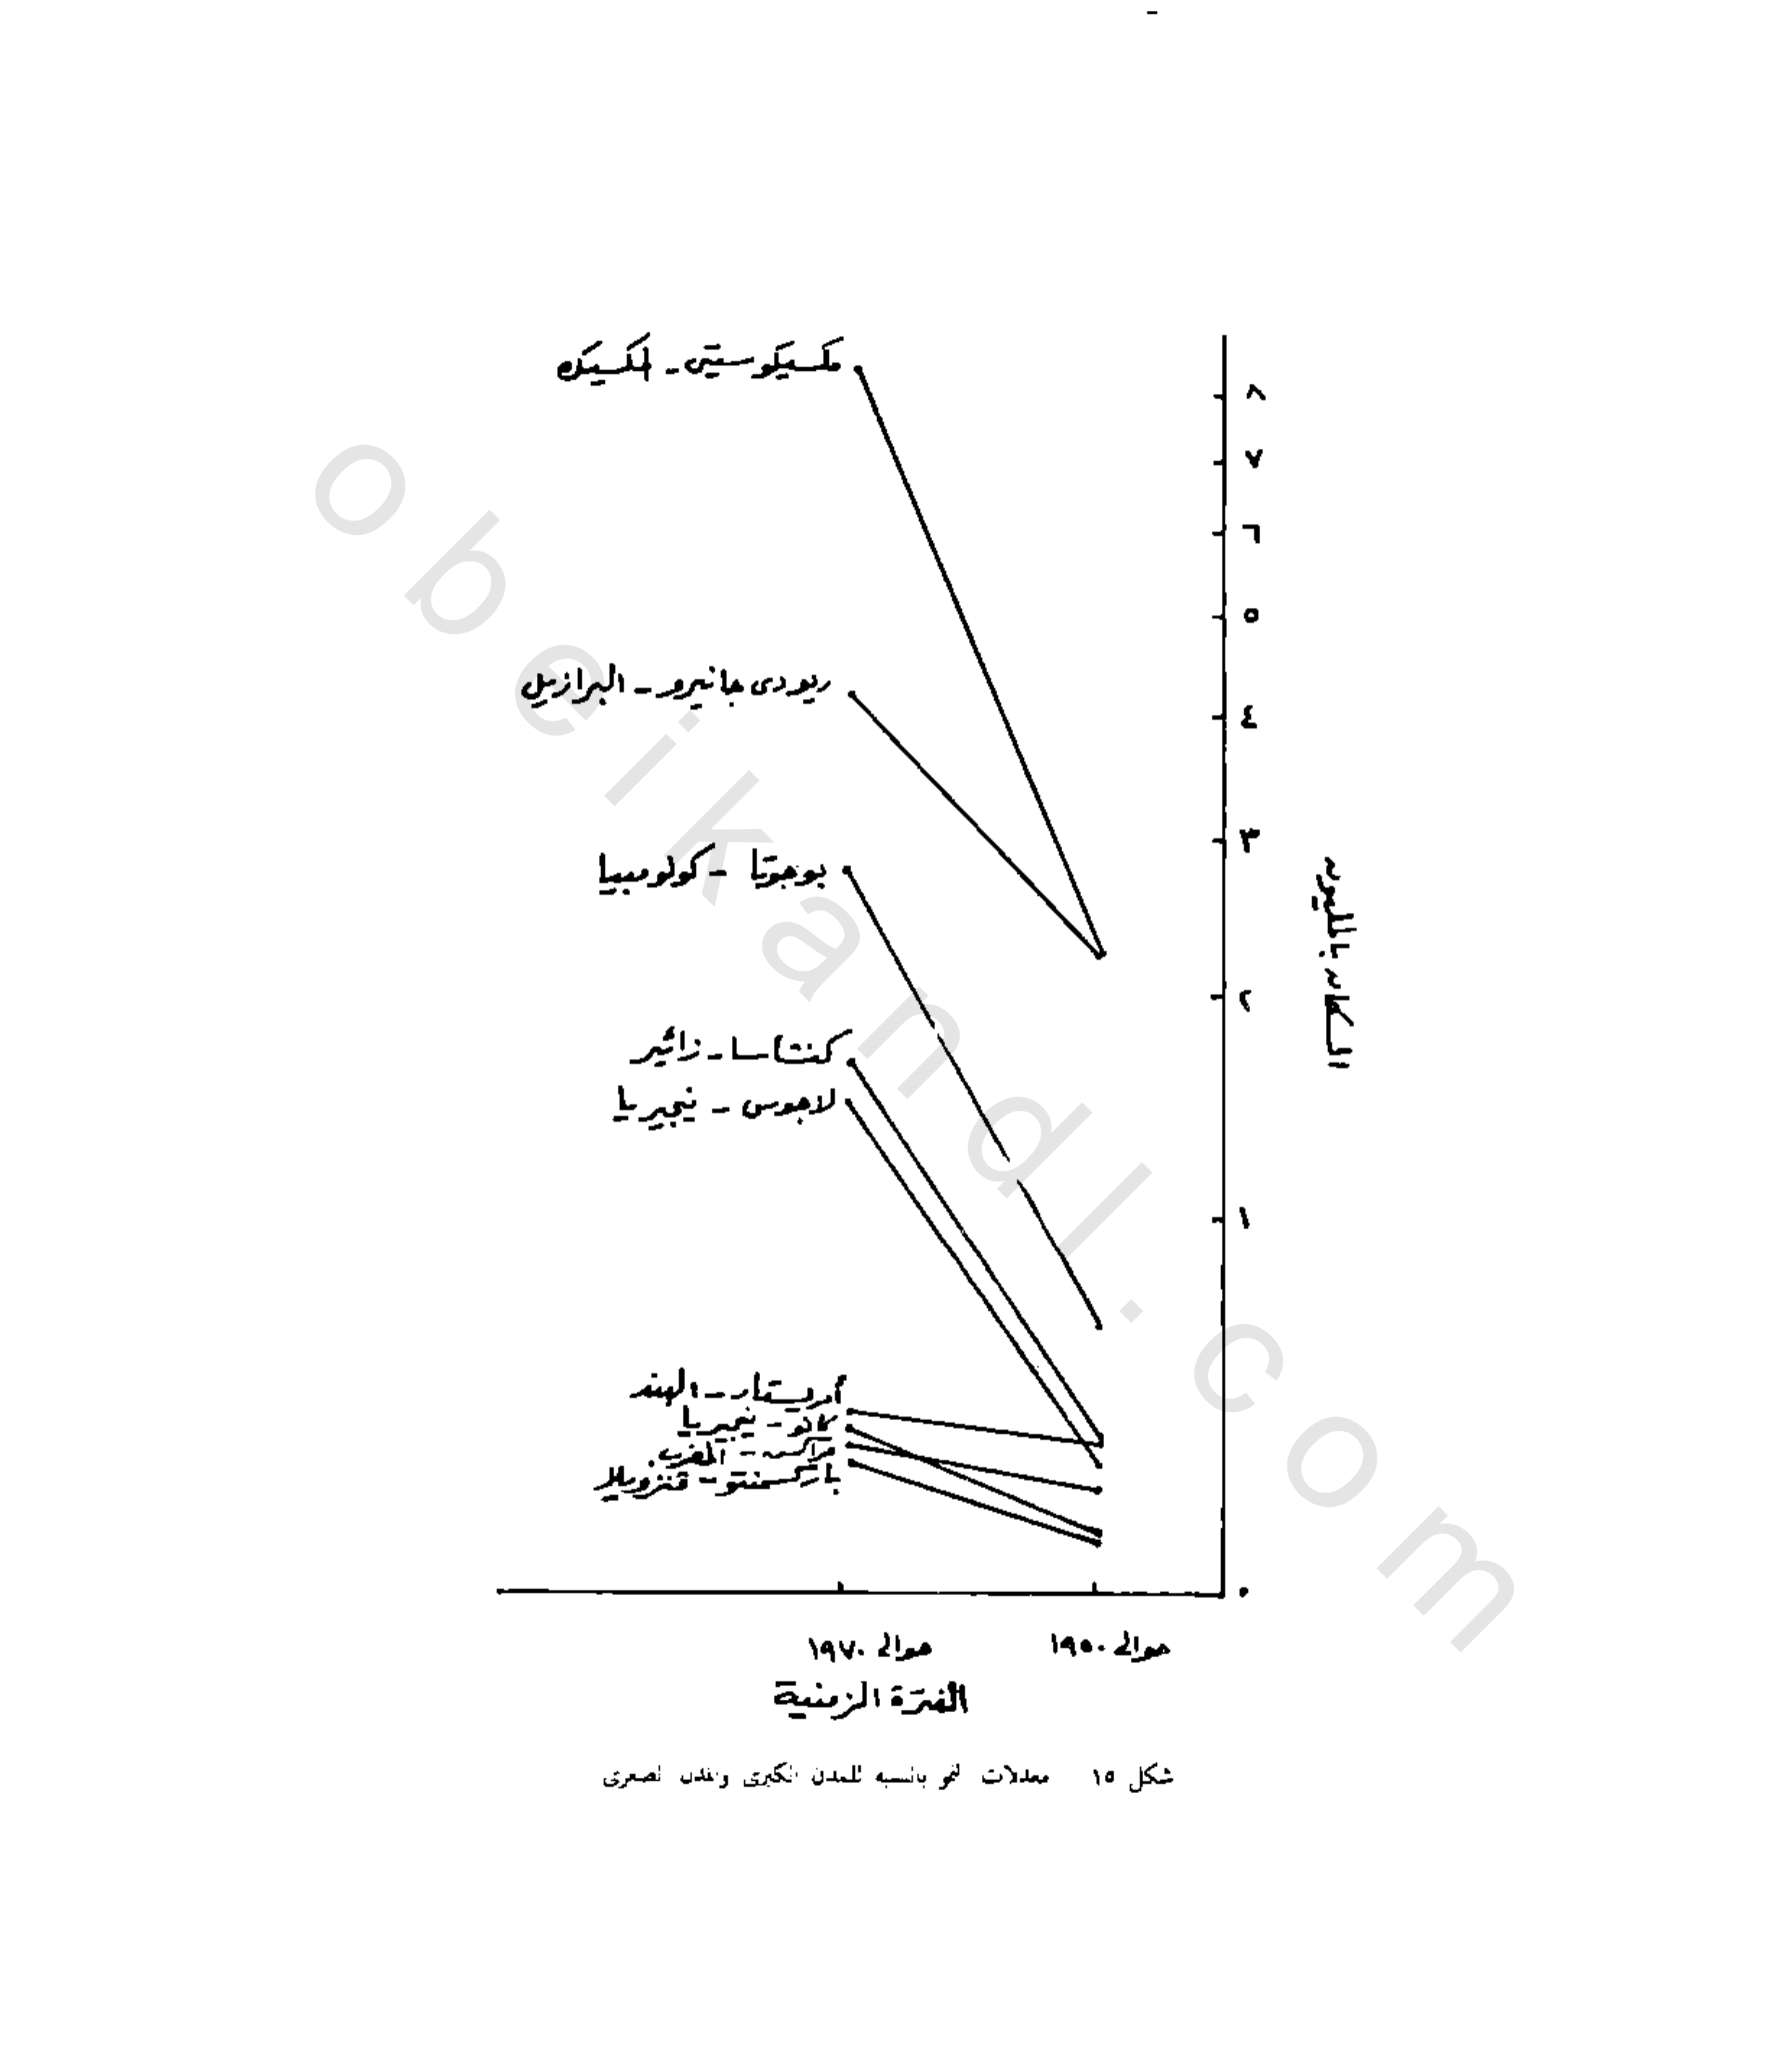 مكسيكوسيتى - المكسيك
ريودى جانيرو - البرازيل
بوجوتا - كولومبيا
كنشاسا - زائير
لاجوس - نيجيريا
أمريتسار - الهند
كانو - نيجيريا
مراكش - المغرب
باركسمتو - فنزويلا
٨
٧
٦
٥
٤
٣
٢
١
٠
السكان بالمليون
حوالى ١٩٥٠
حوالى ١٩٧٠
الفترة الزمنية
شكل ١٥ معدلات النمو بالنسبة للمدن الكبرى والمدن الصغرى
obeikandl.com